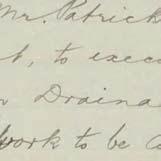 Mr. Patrick
t, to execu
Draina
work to be